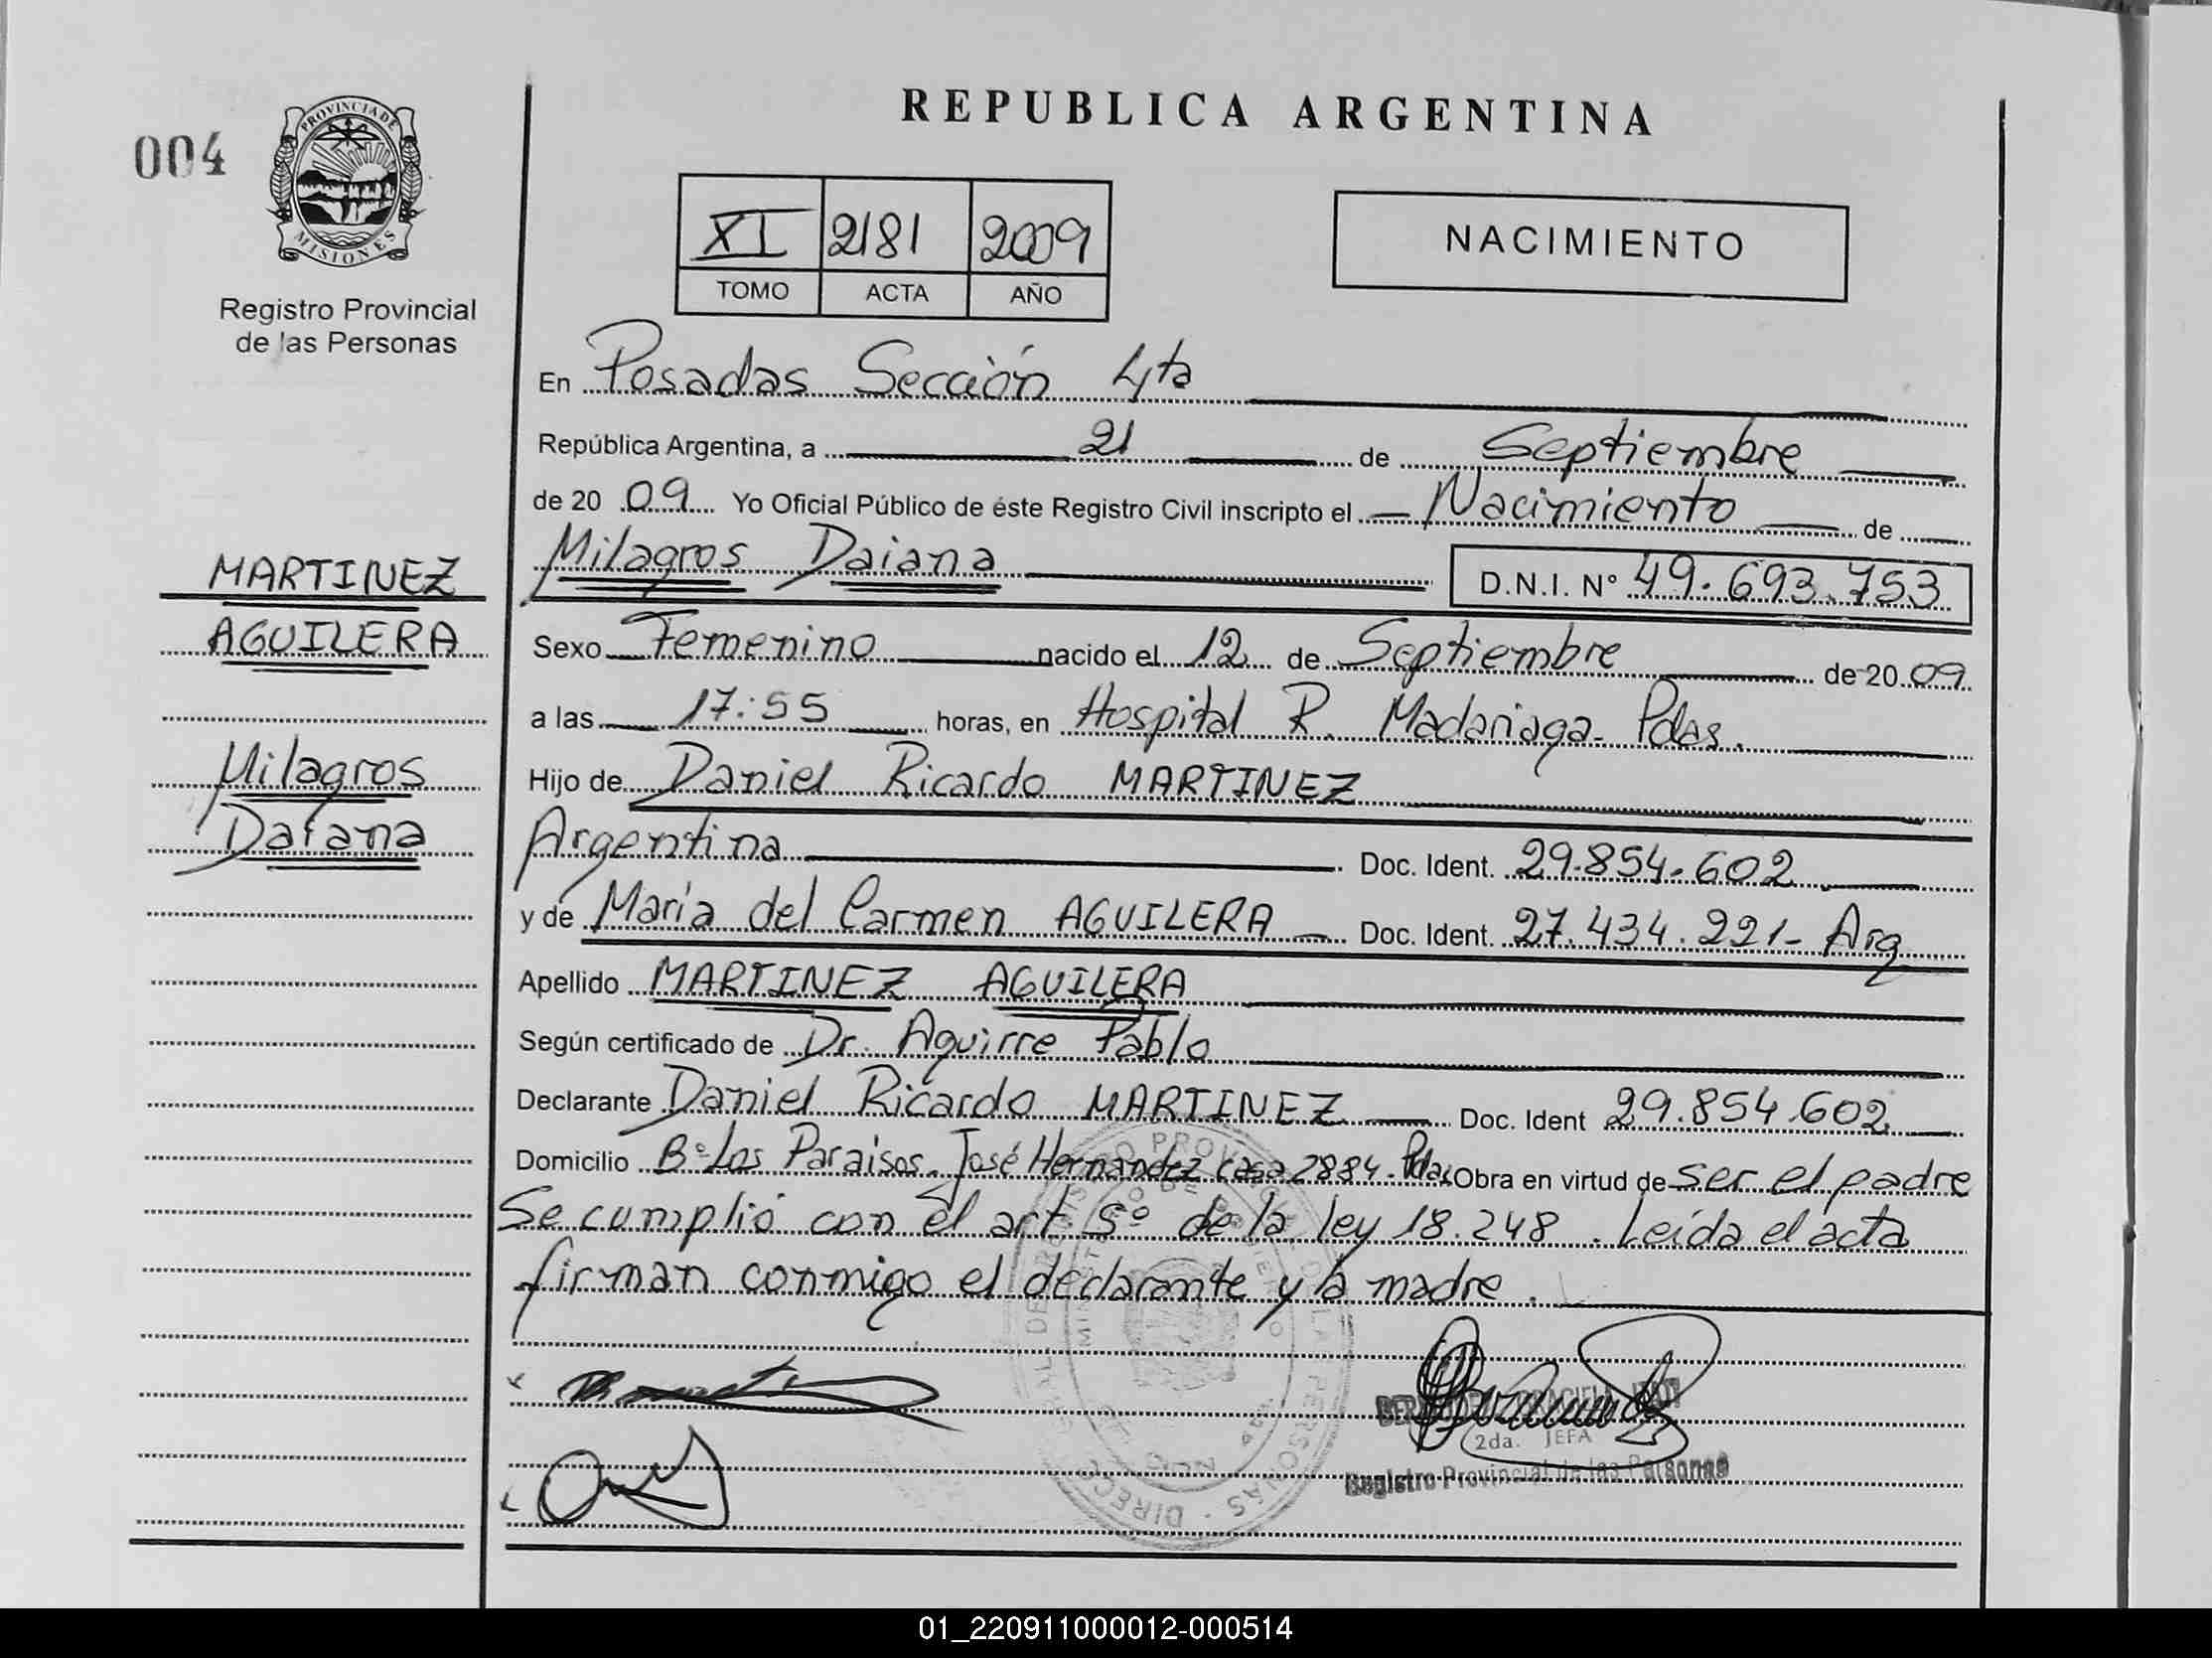 REPUBLICA ARGENTINA
004
PROVINCIA DE
MISIONES
Registro Provincial
de las Personas
XI 2181 2009
TOMO ACTA AÑO
NACIMIENTO
En Posadas Sección 4ta
República Argentina, a 21 de Septiembre
de 20 09 Yo Oficial Público de éste Registro Civil inscripto el Nacimiento de
Milagros Daiana D.N.I. N° 49.693.753
MARTINEZ
AGUILERA
Milagros
Daiana
Sexo Femenino nacido el 12 de Septiembre de 20 09
a las 17:55 horas, en Hospital R. Madariaga - Pdas.
Hijo de Daniel Ricardo MARTINEZ
Argentina Doc. Ident. 29.854.602
y de María del Carmen AGUILERA Doc. Ident. 27.434.221- Arg
Apellido MARTINEZ AGUILERA
Según certificado de Dr. Aguirre Pablo
Declarante Daniel Ricardo MARTINEZ Doc. Ident 29.854.602
Domicilio B° Los Paraisos. José Hernandez casa 2884 - Pdas Obra en virtud de ser el padre
Se cumplió con el art 5° de la ley 18.248 . Leída el acta
firman conmigo el declarante y la madre .
2da. JEFA
Registro Provincial de las Personas
01_220911000012-000514